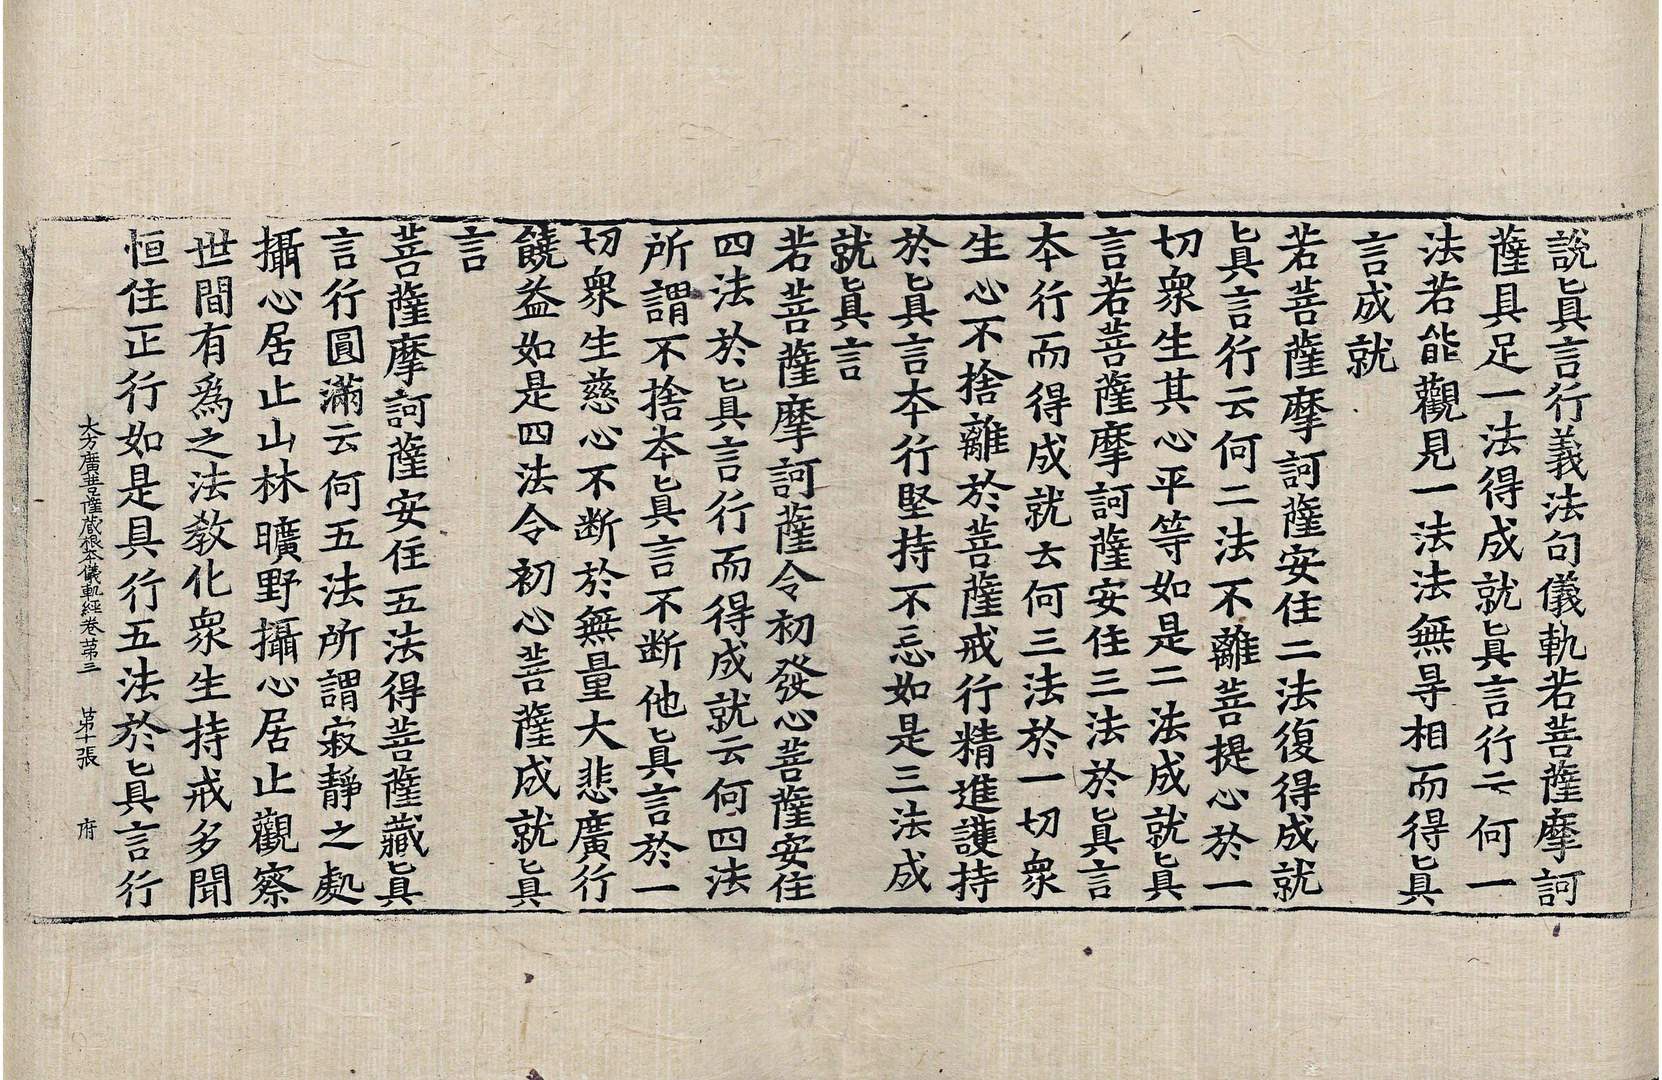 說眞言行義法句儀軌若菩薩摩訶
薩具足一法得成就眞言行云何一
法若能觀見一法法無㝵相而得眞
言成就
若菩薩摩訶薩安住二法復得成就
眞言行云何二法不離菩提心於一
切衆生其心平等如是二法成就眞
言若菩薩摩訶薩安住三法於眞言
本行而得成就云何三法於一切衆
生心不捨離於菩薩戒行精進護持
於眞言本行堅持不忘如是三法成
就眞言
若菩薩摩訶薩令初發心菩薩安住
四法於眞言行而得成就云何四法
所謂不捨本眞言不断他眞言於一
切衆生慈心不断於無量大悲廣行
饒益如是四法令初心菩薩成就眞
言
菩薩摩訶薩安住五法得菩薩藏眞
言行圓滿云何五法所謂寂靜之處
攝心居止山林曠野攝心居止觀察
世間有爲之法教化衆生持戒多聞
恒住正行如是具行五法於眞言行
大方廣菩薩蔵根本儀軌經卷苐三 苐十張 府